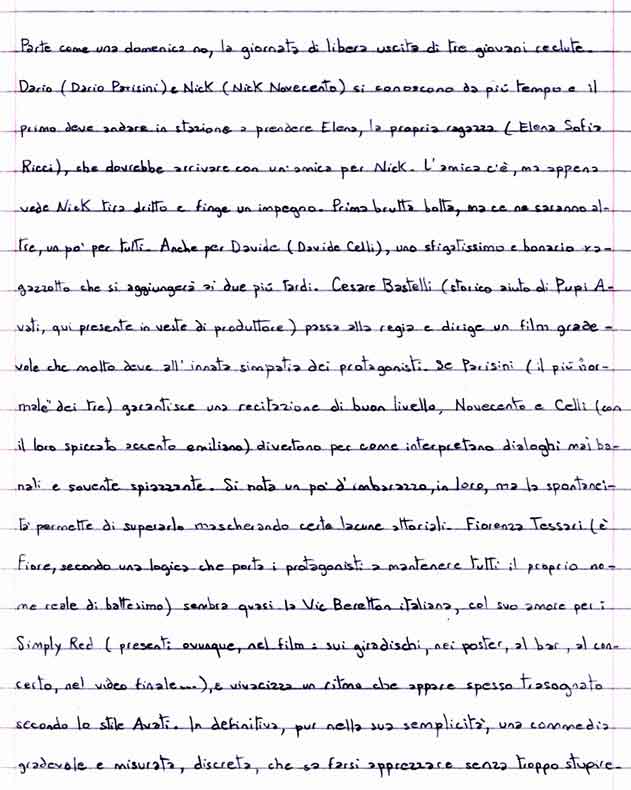 Parte come una domenica no, la giornata di libera uscita di tre giovani reclute.
Dario (Dario Parisini) e Nick (Nick Novecento) si conoscono da più tempo e il
primo deve andare in stazione a prendere Elena, la propria ragazza (Elena Sofia
Ricci), che dovrebbe arrivare con un'amica per Nick. L'amica c'è, ma appena
vede Nick tira dritto e finge un impegno. Prima brutta botta, ma ce ne saranno al-
tre, un po' per tutti. Anche per Davide (Davide Celli), uno sfigatissimo e bonario ra-
gazzotto che si aggiungerà ai due più tardi. Cesare Bastelli (storico aiuto di Pupi A-
vati, qui presente in veste di produttore) passa alla regia e dirige un film grade-
vole che molto deve all'innata simpatia dei protagonisti. Se Parisini (il più "nor-
male" dei tre) garantisce una recitazione di buon livello, Novecento e Celli (con
il loro spiccato accento emiliano) divertono per come interpretano dialoghi mai ba-
nali e sovente spiazzante. Si nota un po' d'imbarazzo, in loro, ma la spontanei-
tà permette di superarlo mascherando certe lacune attoriali. Fiorenza Tessari (è
Fiore, secondo una logica che porta i protagonisti a mantenere tutti il proprio no-
me reale di battesimo) sembra quasi la Vic Beretton italiana, col suo amore per i
Simply Red (presenti ovunque, nel film: sui giradischi, nei poster, al bar, al con-
certo, nel video finale...), e vivacizza un ritmo che appare spesso trasognato
secondo lo stile Avati. In definitiva, pur nella sua semplicità, una commedia
gradevole e misurata, discreta, che sa farsi apprezzare senza troppo stupire.